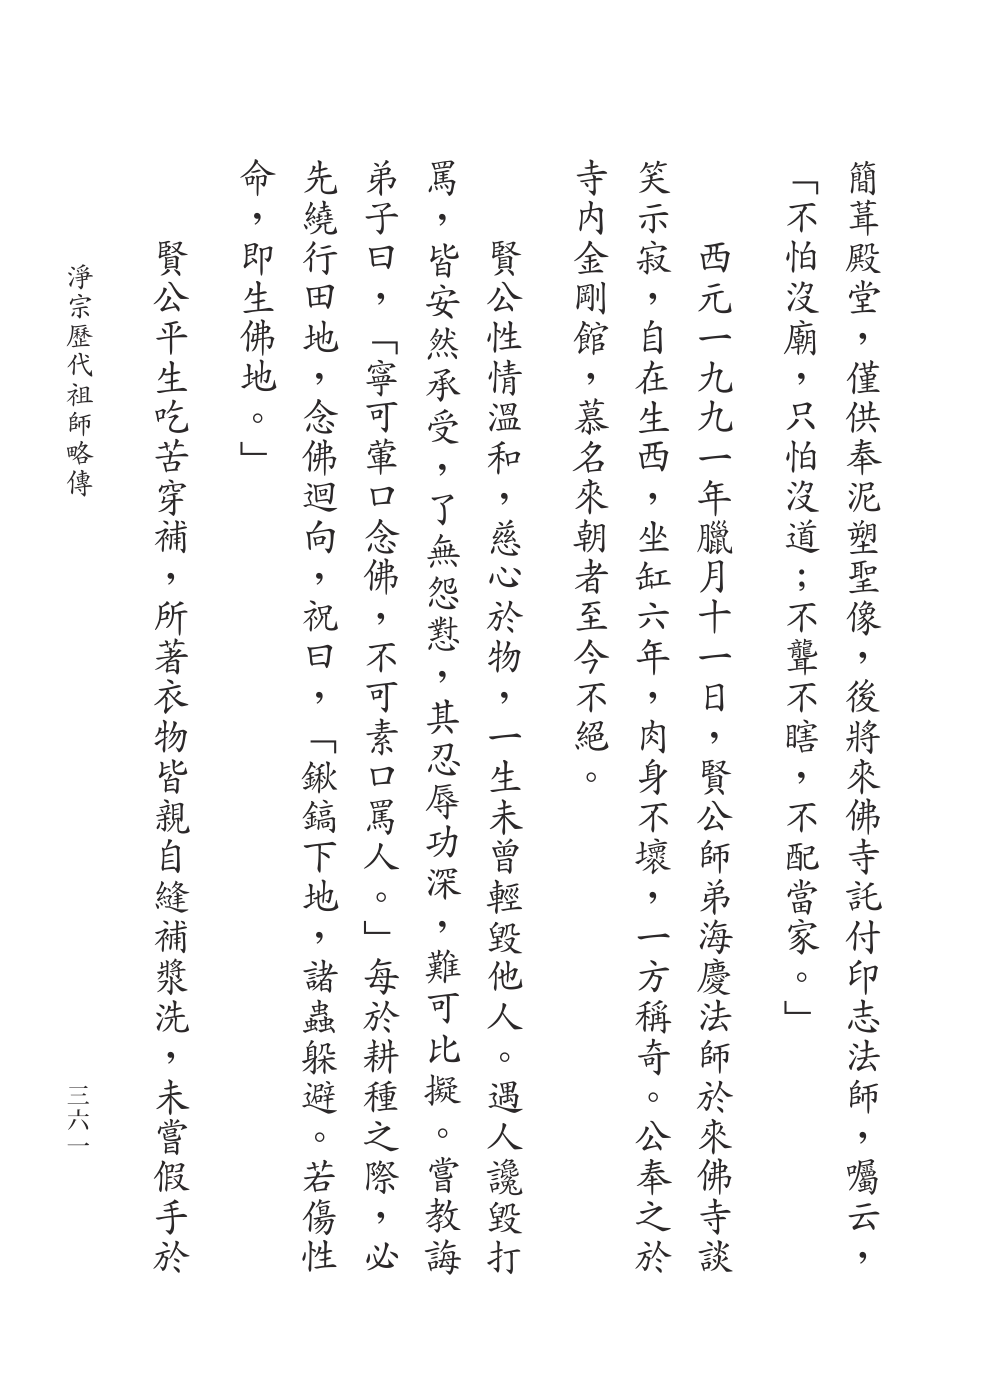 簡葺殿堂，僅供奉泥塑聖像，後將來佛寺託付印志法師，囑云，
「不怕沒廟，只怕沒道；不聾不瞎，不配當家。」
西元一九九一年臘月十一日，賢公師弟海慶法師於來佛寺談
笑示寂，自在生西，坐缸六年，肉身不壞，一方稱奇。公奉之於
寺內金剛館，慕名來朝者至今不絕。
賢公性情溫和，慈心於物，一生未曾輕毀他人。遇人讒毀打
罵，皆安然承受，了無怨懟，其忍辱功深，難可比擬。嘗教誨
弟子曰，「寧可葷口念佛，不可素口罵人。」每於耕種之際，必
先繞行田地，念佛迴向，祝曰，「鍬鎬下地，諸蟲躲避。若傷性
命，即生佛地。」
賢公平生吃苦穿補，所著衣物皆親自縫補漿洗，未嘗假手於
淨宗歷代祖師略傳
三六一